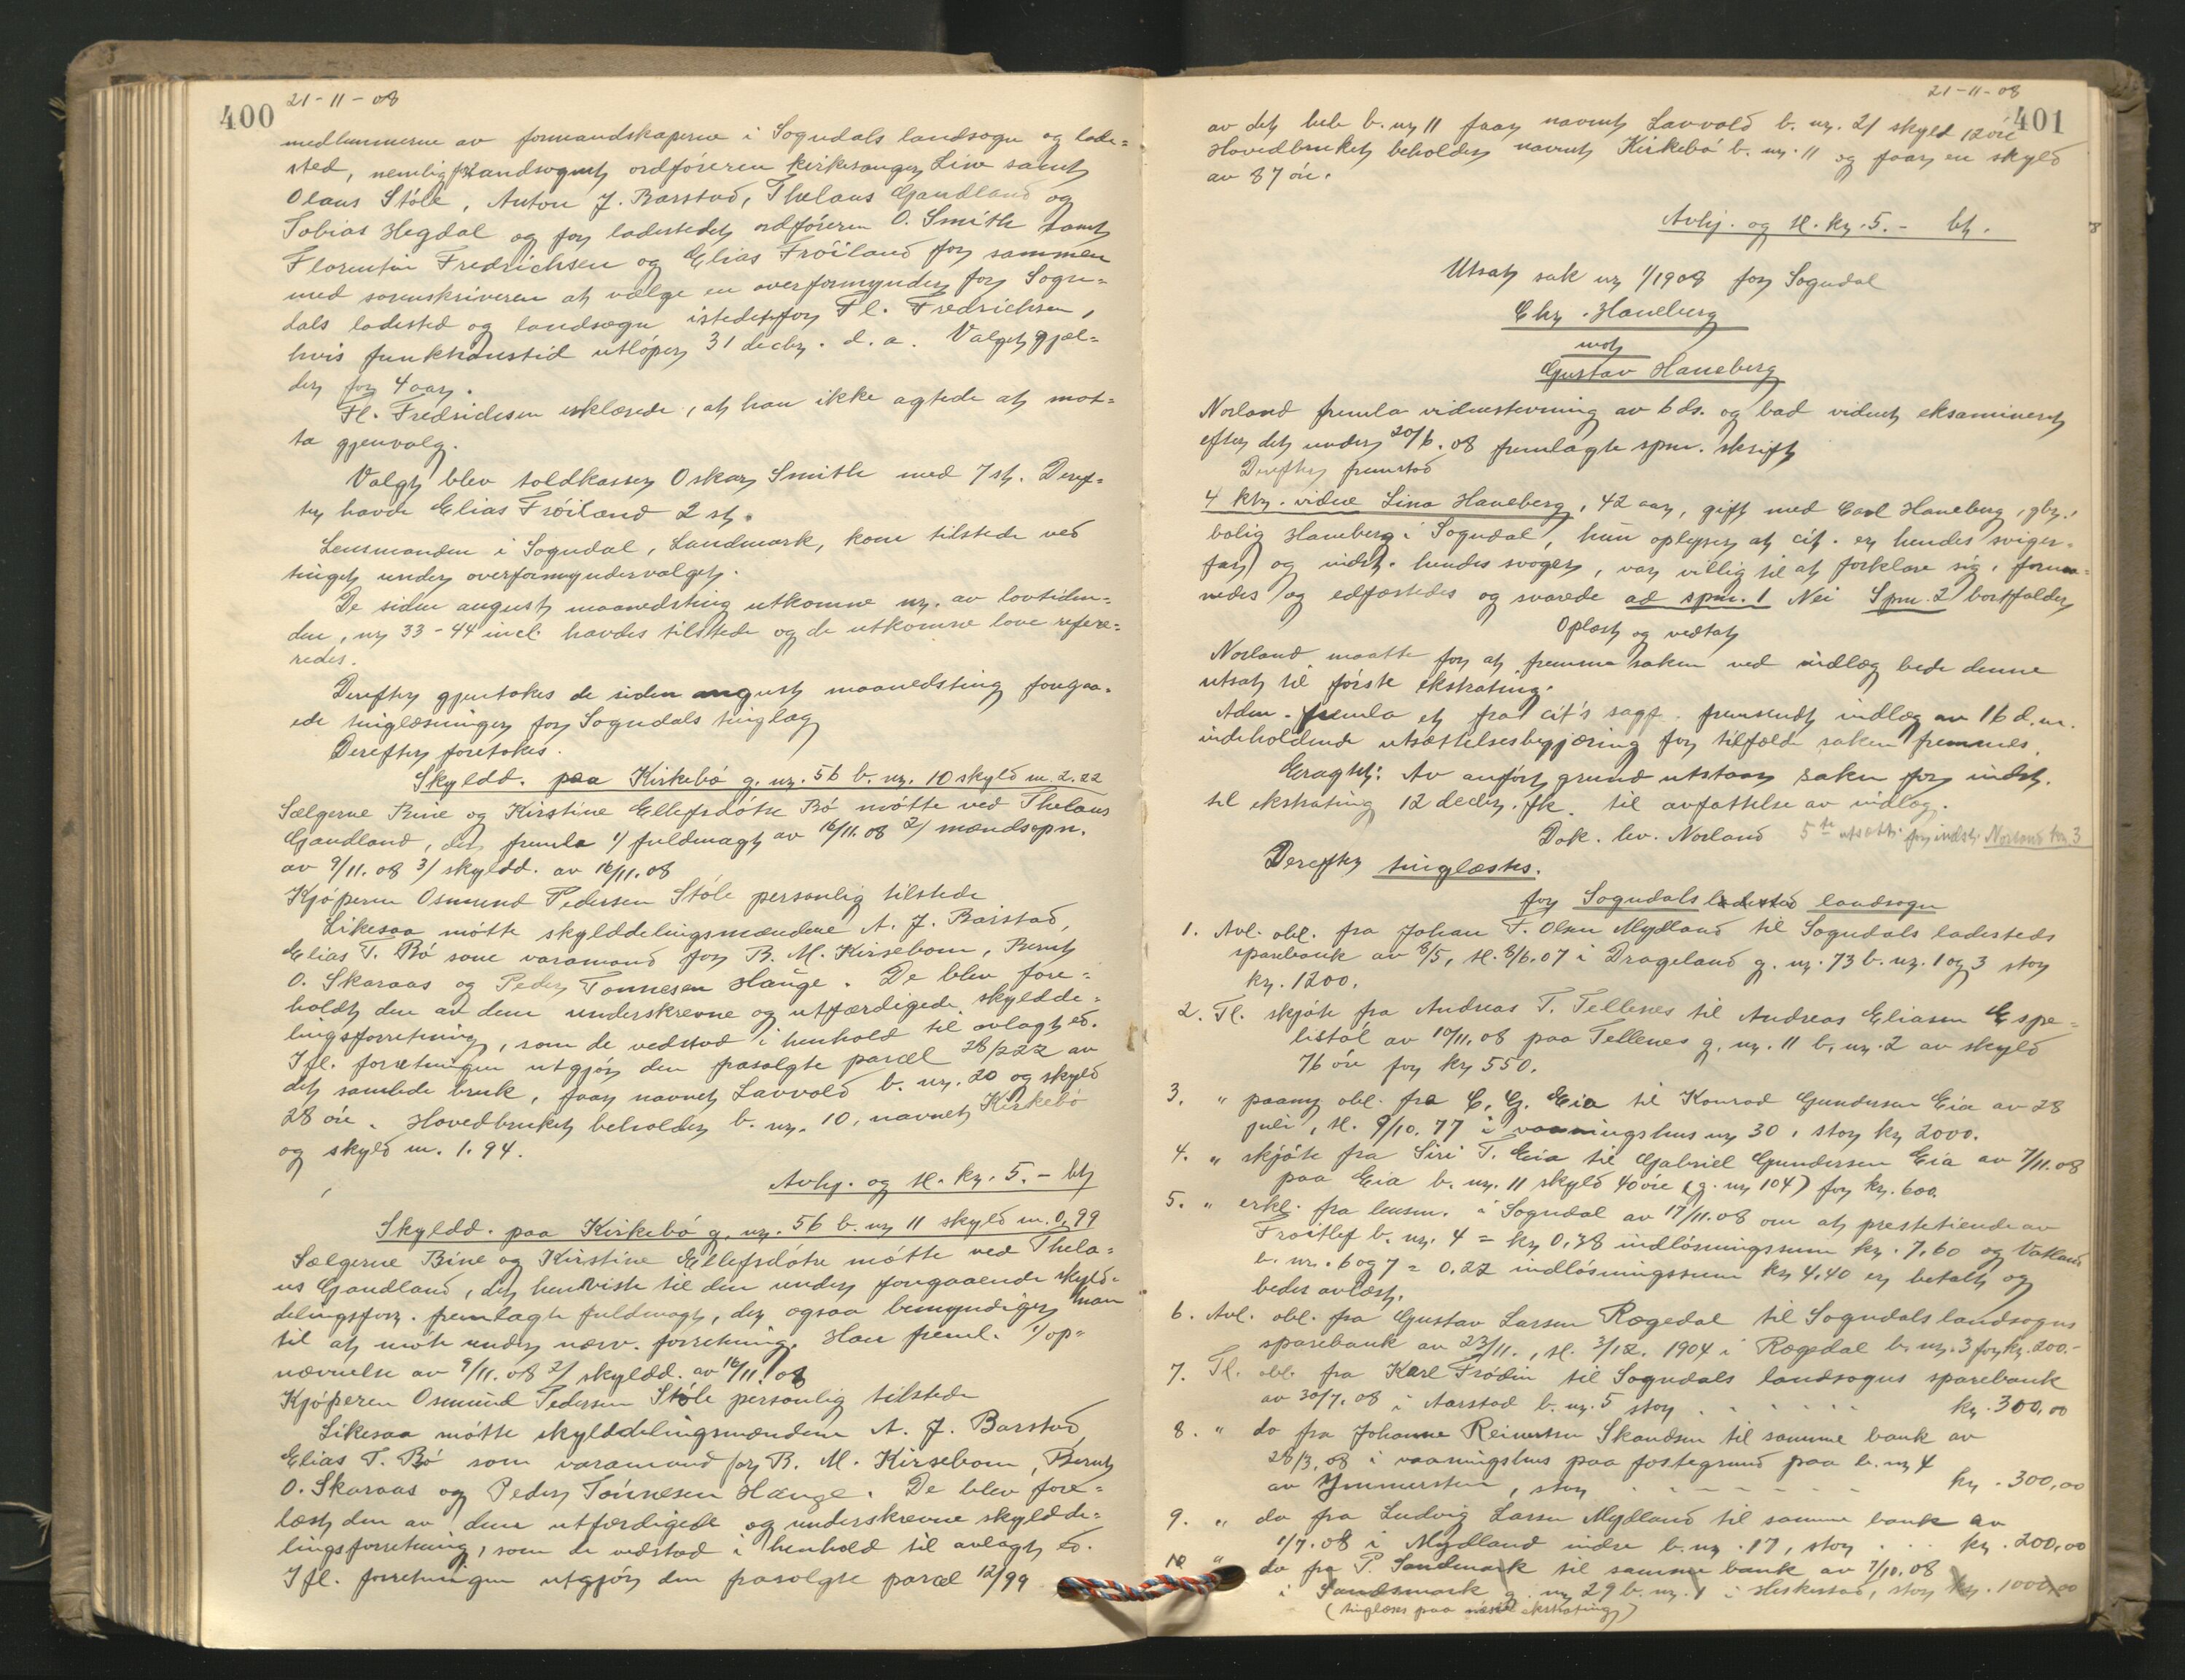 400
21-11-08
medlemmerne av formandskaperne i Sogndals landsogn og lade=
sted, nemlig for landsognet ordføreren kirkesanger Liw samt
Olaus Stóle, Anton J. Barstad, Thelaus Gandland og
Tobias Hegdal og for ladestedet ordføreren O. Smith samt
Florentin Fredrichsen og Elias Fróiland for sammen
med sorenskriveren at vælge en overformynder for Sogn=
dals ladested og landsogn istedetfor Fl. Fredrichsen,
hvis funktionstid utlóper 31 decbr. d. a. Valget gjæl=
der for 4 aar.
Fl. Fredrichsen erklærede, at han ikke agtede at mot=
ta gjenvalg.
Valgt blev toldkasser Oskar Smith med 7 st. Deref=
ter havde Elias Fróiland 2 st.
Lensmanden i Sogndal, Landmark, kom tilstede ved
tinget under overformyndervalget.
De siden august maanedsting utkomne nr. av lovtiden=
den, nr 33-44 incl. havdes tilstede og de utkomne love refere=
redes.
Derefter gjentokes de siden august maanedsting forega=
ede tinglæsninger for Sogndals tinglag
Derefter foretokes.
Skyldd. paa Kirkebó g. nr. 56 b. nr. 10 skyld m. 2.22
Sælgerne Bine og Kirstine Ellefsdótre Bó mótte ved Thelaus
Gandland, der fremla 1/ fuldmagt av 16/11.08 2/ mændsopn.
av 9/11.08 3/ skyldd. av 16/11.08
Kjóperen Osmund Pedersen Stóle personlig tilstede
Likesaa mótte skylddelingsmændene A. J. Barstad,
Elias T. Bó som varamand for B. M. Kirsebom, Bernt
O. Skaraas og Peder Tonnesen Hauge. De blev fore=
holdt den av dem underskrevne og utfærdigede skyldde=
lingsforretning, som de vedstod i henhold til avlagt ed.
Ifl. forretningen utgjór den frasolgte parcel 28/222 av
det samlede bruk, faar navnet Lavvold b. nr. 20 og skyld
28 óre. Hovedbruket beholder b. nr. 10, navnet Kirkebó
og skyld m. 1.94.
Avhj. og tl. kr. 5.- bt
Skyldd. paa Kirkebó g. nr. 56 b. nr 11 skyld m. 0,99
Sælgerne Bine og Kirstine Ellefsdótre mótte ved Thela=
us Gandland, der henviste til den under foregaaende skyld=
delingsforr. fremlagte fuldmagt, der ogsaa bemyndiger han
til at móte under nærv. forretning. Han freml. 1/ op=
nævnelse av 9/11.08 2/ skyldd. av 16/11.08
Kjóperen Osmund Pedersen Stóle personlig tilstede
Likesaa mótte skylddelingsmændene A. J. Barstad
Elias T. Bó som varamand for B. M. Kirsebom, Bernt
O. Skaraas og Peder Tónnesen Hauge. De blev fore=
læst den av dem utfærdigede og underskrevne skyldde=
lingsforretning, som de vedstod i henhold til avlagt ed.
Ifl. forretningen utgjór den frasolgte parcel 12/99
21-11-08
401
av det hele b. nr 11 faar navnet Lavvold b. nr. 21 skyld 12 óre
Hovedbruket beholder navnet Kirkebó b. nr. 11 og faar en skyld
av 87 óre.
Avhj. og tl. kr. 5.- bt.
Utsat sak nr 1/1908 for Sogndal
Chr. Haneberg
mot
Gustav Haneberg
Norland fremla vidnestevning av 6 ds. og bad vidnet eksamineret
efter det under 20/6.08 fremlagte spm. skrift
Derefter fremstod
4 ktr. vidne Lina Haneberg, 42 aar, gift med Carl Haneberg, gbr.,
bolig Haneberg i Sogndal, hun oplyser at cit. er hendes sviger=
far og indst. hendes svoger, var villig til at forklare sig, forma=
nedes og edfæstedes og svarede ad spm. 1 Nei Spm. 2 bortfalder
Oplæst og vedtat
Norland maatte for at fremme saken ved indlæg bede denne
utsat til fórste ekstrating.
Adm. fremla et fra cit's sagf. fremsendt indlæg av 16 d.m.
indeholdende utsættelsesbegjæring for tilfælde saken fremmes.
Eragtet: Av anfórt grund utstaar saken for indst.
til ekstrating 12 decbr. fk. til avfattelse av indlæg.
Dok. lev. Norland 5te utsætt. for indst. Norland kr 3
Derefter tinglæstes.
for Sogndals ladested landsogn
1. Avl. obl. fra Johan T. Olsen Mydland til Sogndals ladesteds
sparebank av 8/5, tl. 8/6.07 i Drageland g. nr. 73 b. nr. 1 og 3 stor
kr. 1200.
2. Tl. skjóte fra Andreas T. Tellenes til Andreas Eliasen Espe=
listól av 10/11.08 paa Tellenes g. nr. 11 b. nr. 2 av skyld
76 óre for kr 550.
3. " paany obl. fra C. G. Eia til Konrad Gundersen Eia av 28
juli, tl. 9/10.77 i vaaningshus nr 30, stor kr 2000.
4. " skjóte fra Siri T. Eia til Gabriel Gundersen Eia av 7/11.08
paa Eia b. nr. 11 skyld 40 óre (g. nr 104) for kr. 600.
5. " erkl. fra lensm. i Sogndal av 17/11.08 om at prestetiende av
Froitlef b. nr. 4 = kr 0,38 indlósningssum kr. 7,60 og
b. nr. 6 og 7 = 0.22 indlósningssum kr 4,40 er betalt og
bedes avlæst.
6. Avl. obl. fra Gustav Larsen Rægedal til Sogndals landsogns
sparebank av 23/11., tl. 3/12. 1904 i Rægedal b. nr. 3 for kr. 200.-
7. Tl. obl. fra Karl Fródin til Sogndals landsogns sparebank
av 30/7.08 i Aarstad b. nr. 5 stor . . . . . . kr. 300,00
8. " do fra Johanne Reinertsen Skandsen til samme bank av
28/3.08 i vaaningshus paa festegrund paa b. nr 4
av Ymmersten, stor . . . . . . kr. 300,00
9. " do fra Ludvig Larsen Mydland til samme bank av
1/7.08 i Mydland indre b. nr. 17, stor . . . kr. 200,00
10 " do fra P. Sandmark til samme bank av 7/10.08
i Sandsmark g. nr 29 b. nr. 1 i Heskestad, stor kr. 1000,00
(tinglæses paa næste ekstrating)